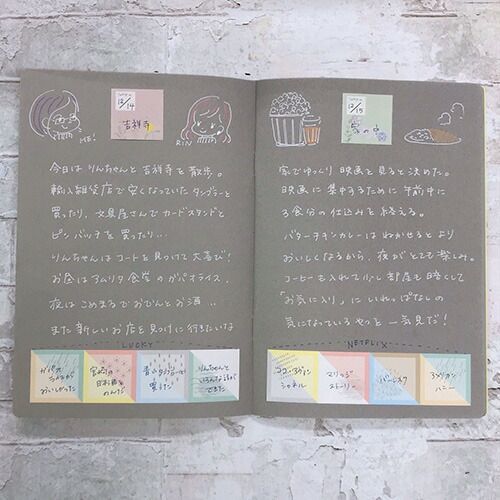 12/14
吉祥寺
ME!
RIN
今日はりんちゃんと吉祥寺を散歩。
輸入雑貨店で安くなっていたタンブラーを
買ったり、文具屋さんでカードスタンドと
ピンバッチを買ったり...
りんちゃんはコートを見つけて大喜び!
お昼はアムリタ食堂のガパオライス、
夜はこめまるでおでんとお酒..
また新しいお店を見つけに行きたいな
LUCKY
ガパオ
ライスが
おいしかった
宮崎の
日本酒を
のんだ
青いタンブラーが
買えた
りんちゃんと
いろんな話が
できた
12/15
家の中
家でゆっくり映画を見ると決めた。
映画に集中するために午前中に
3食分の仕込みを終える。
バターチキンカレーはねかせるとより
おいしくなるから、夜がとても楽しみ。
コーヒーも入れて少し部屋も暗くして
「お気に入り」にいれっぱなしの
気になっているやつを一気見だ!
NETFLIX
ココ・アヴァン
シャネル
マリッジ
ストーリー
バーレスク
アメリカン
ハニー